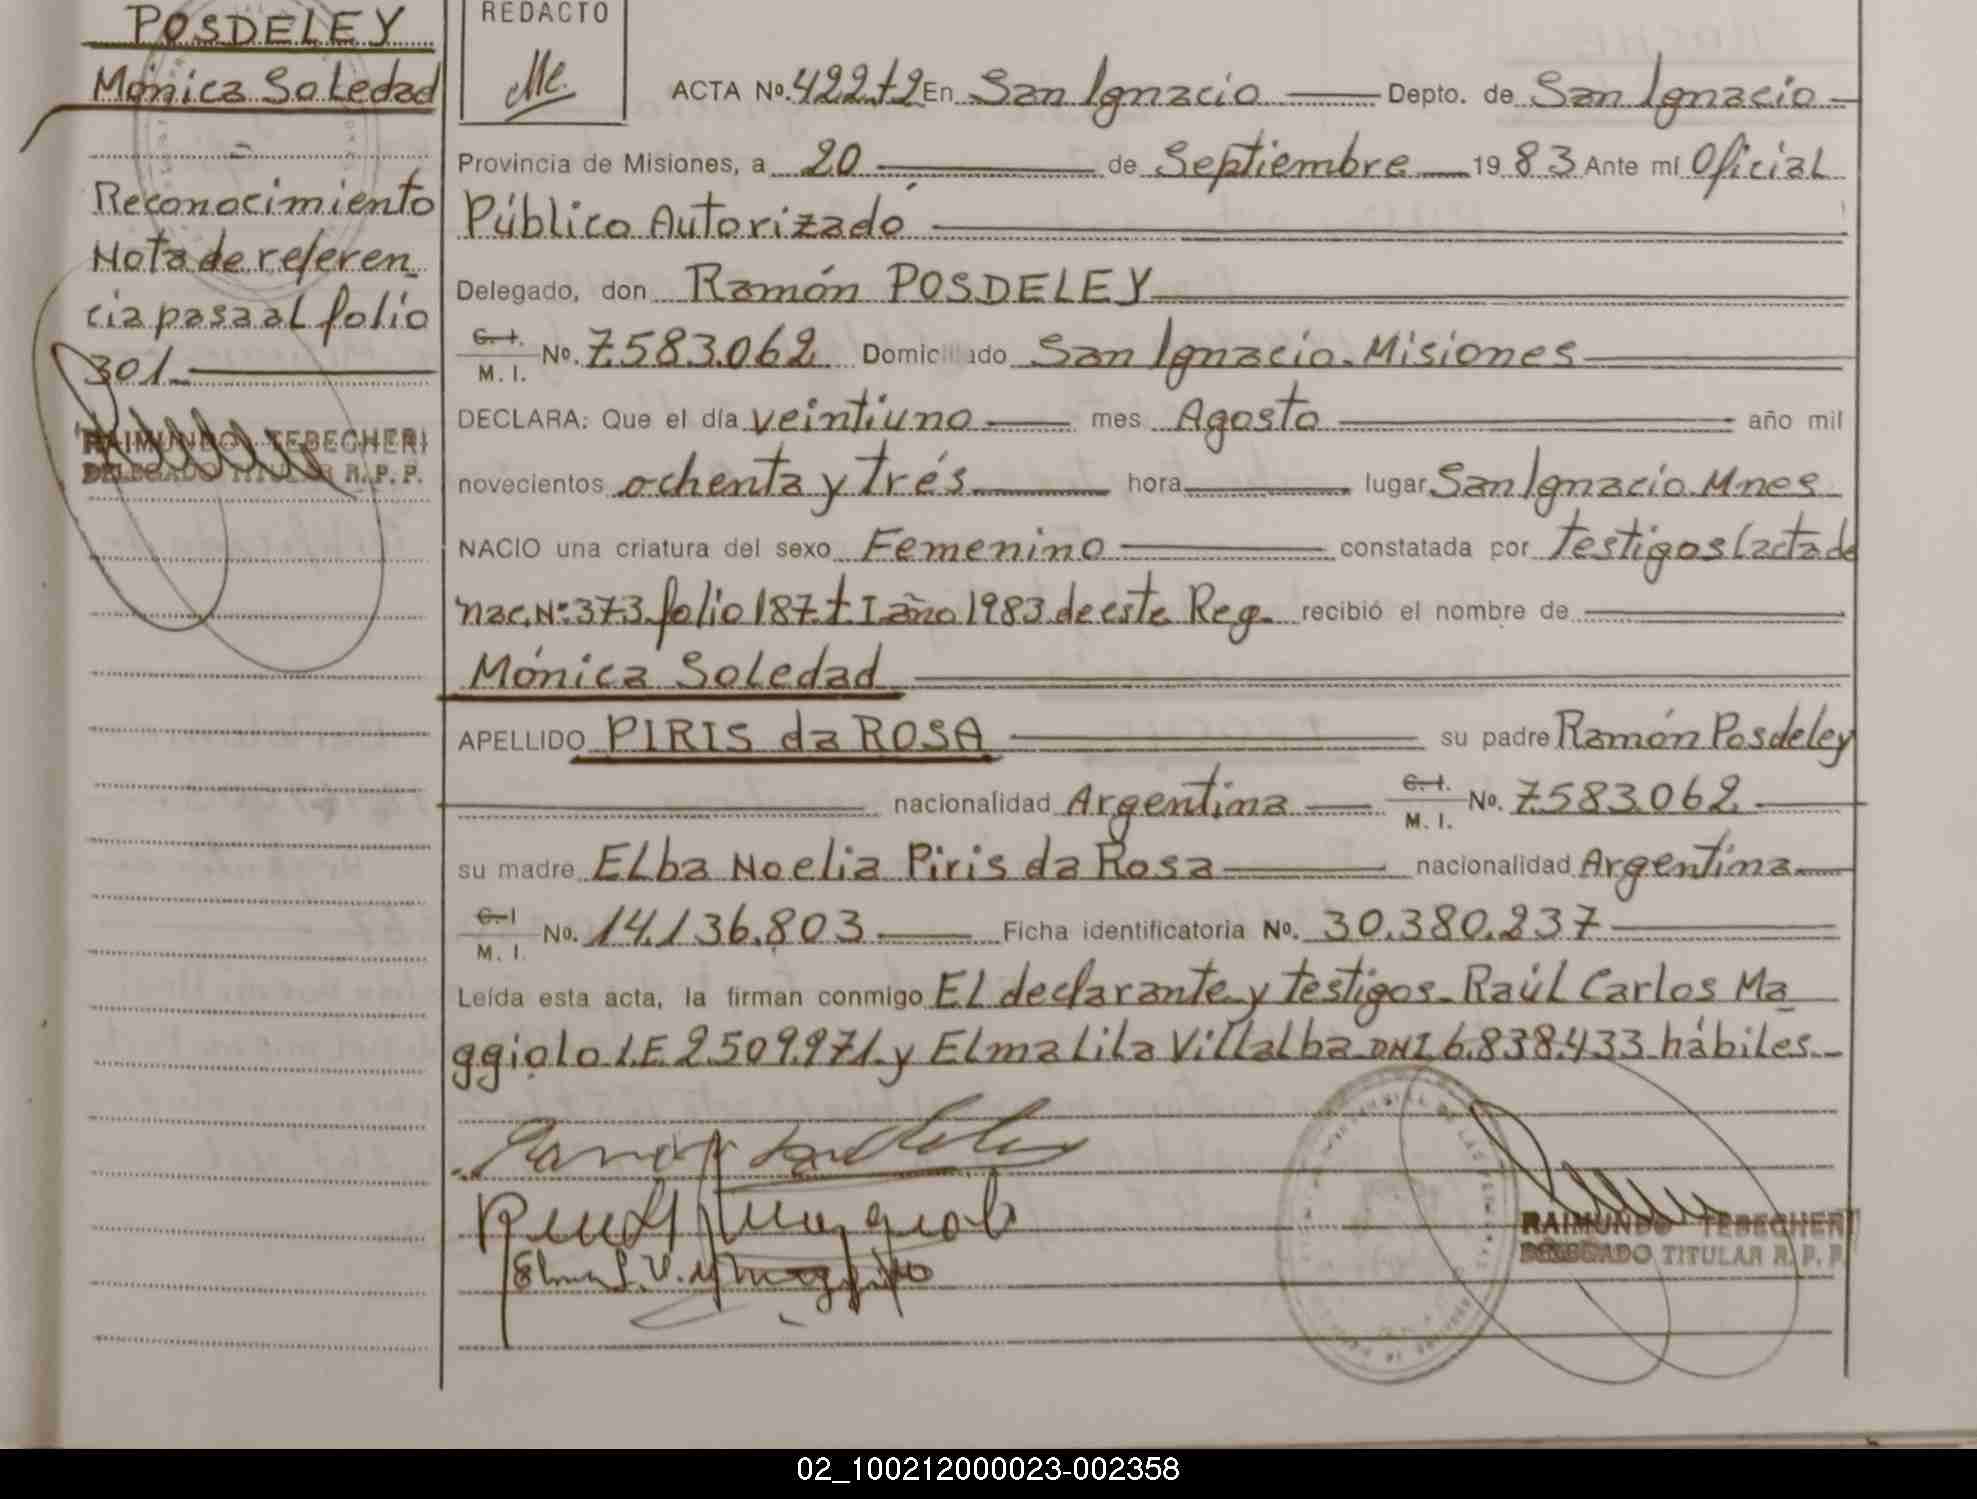 POSDELEY
Mónica Soledad
Reconocimiento
Nota de referen
cia pasa al folio
301
RAIMUNDO TEBECHERI
DELEGADO TITULAR R.P.P.
REDACTO
ACTA No. 422 t2 En San Ignacio Depto. de San Ignacio
Provincia de Misiones, a 20 de Septiembre 1983 Ante mí Oficial
Público Autorizado
Delegado, don Ramón POSDELEY
C. I. M. I. No. 7.583.062 Domiciliado San Ignacio. Misiones
DECLARA: Que el día veintiuno mes Agosto año mil
novecientos ochenta y trés hora lugar San Ignacio. Mnes
NACIO una criatura del sexo Femenino constatada por testigos (acta de
nac. Nº: 373. folio 187. t I año 1983 de este Reg. recibió el nombre de
Mónica Soledad
APELLIDO PIRIS da ROSA su padre Ramón Posdeley
nacionalidad Argentina C. I. M. I. No. 7.583.062
su madre Elba Noelia Piris da Rosa nacionalidad Argentina
C. I M. I. No. 14.136.803 Ficha identificatoria No. 30.380.237
Leída esta acta, la firman conmigo El declarante y testigos. Raúl Carlos Ma
ggiolo L.E. 2.509.971. y Elma Lila Villalba DNI 6.838.433 hábiles.
RAIMUNDO TEBECHERI
DELEGADO TITULAR R. P. P.
02_100212000023-002358